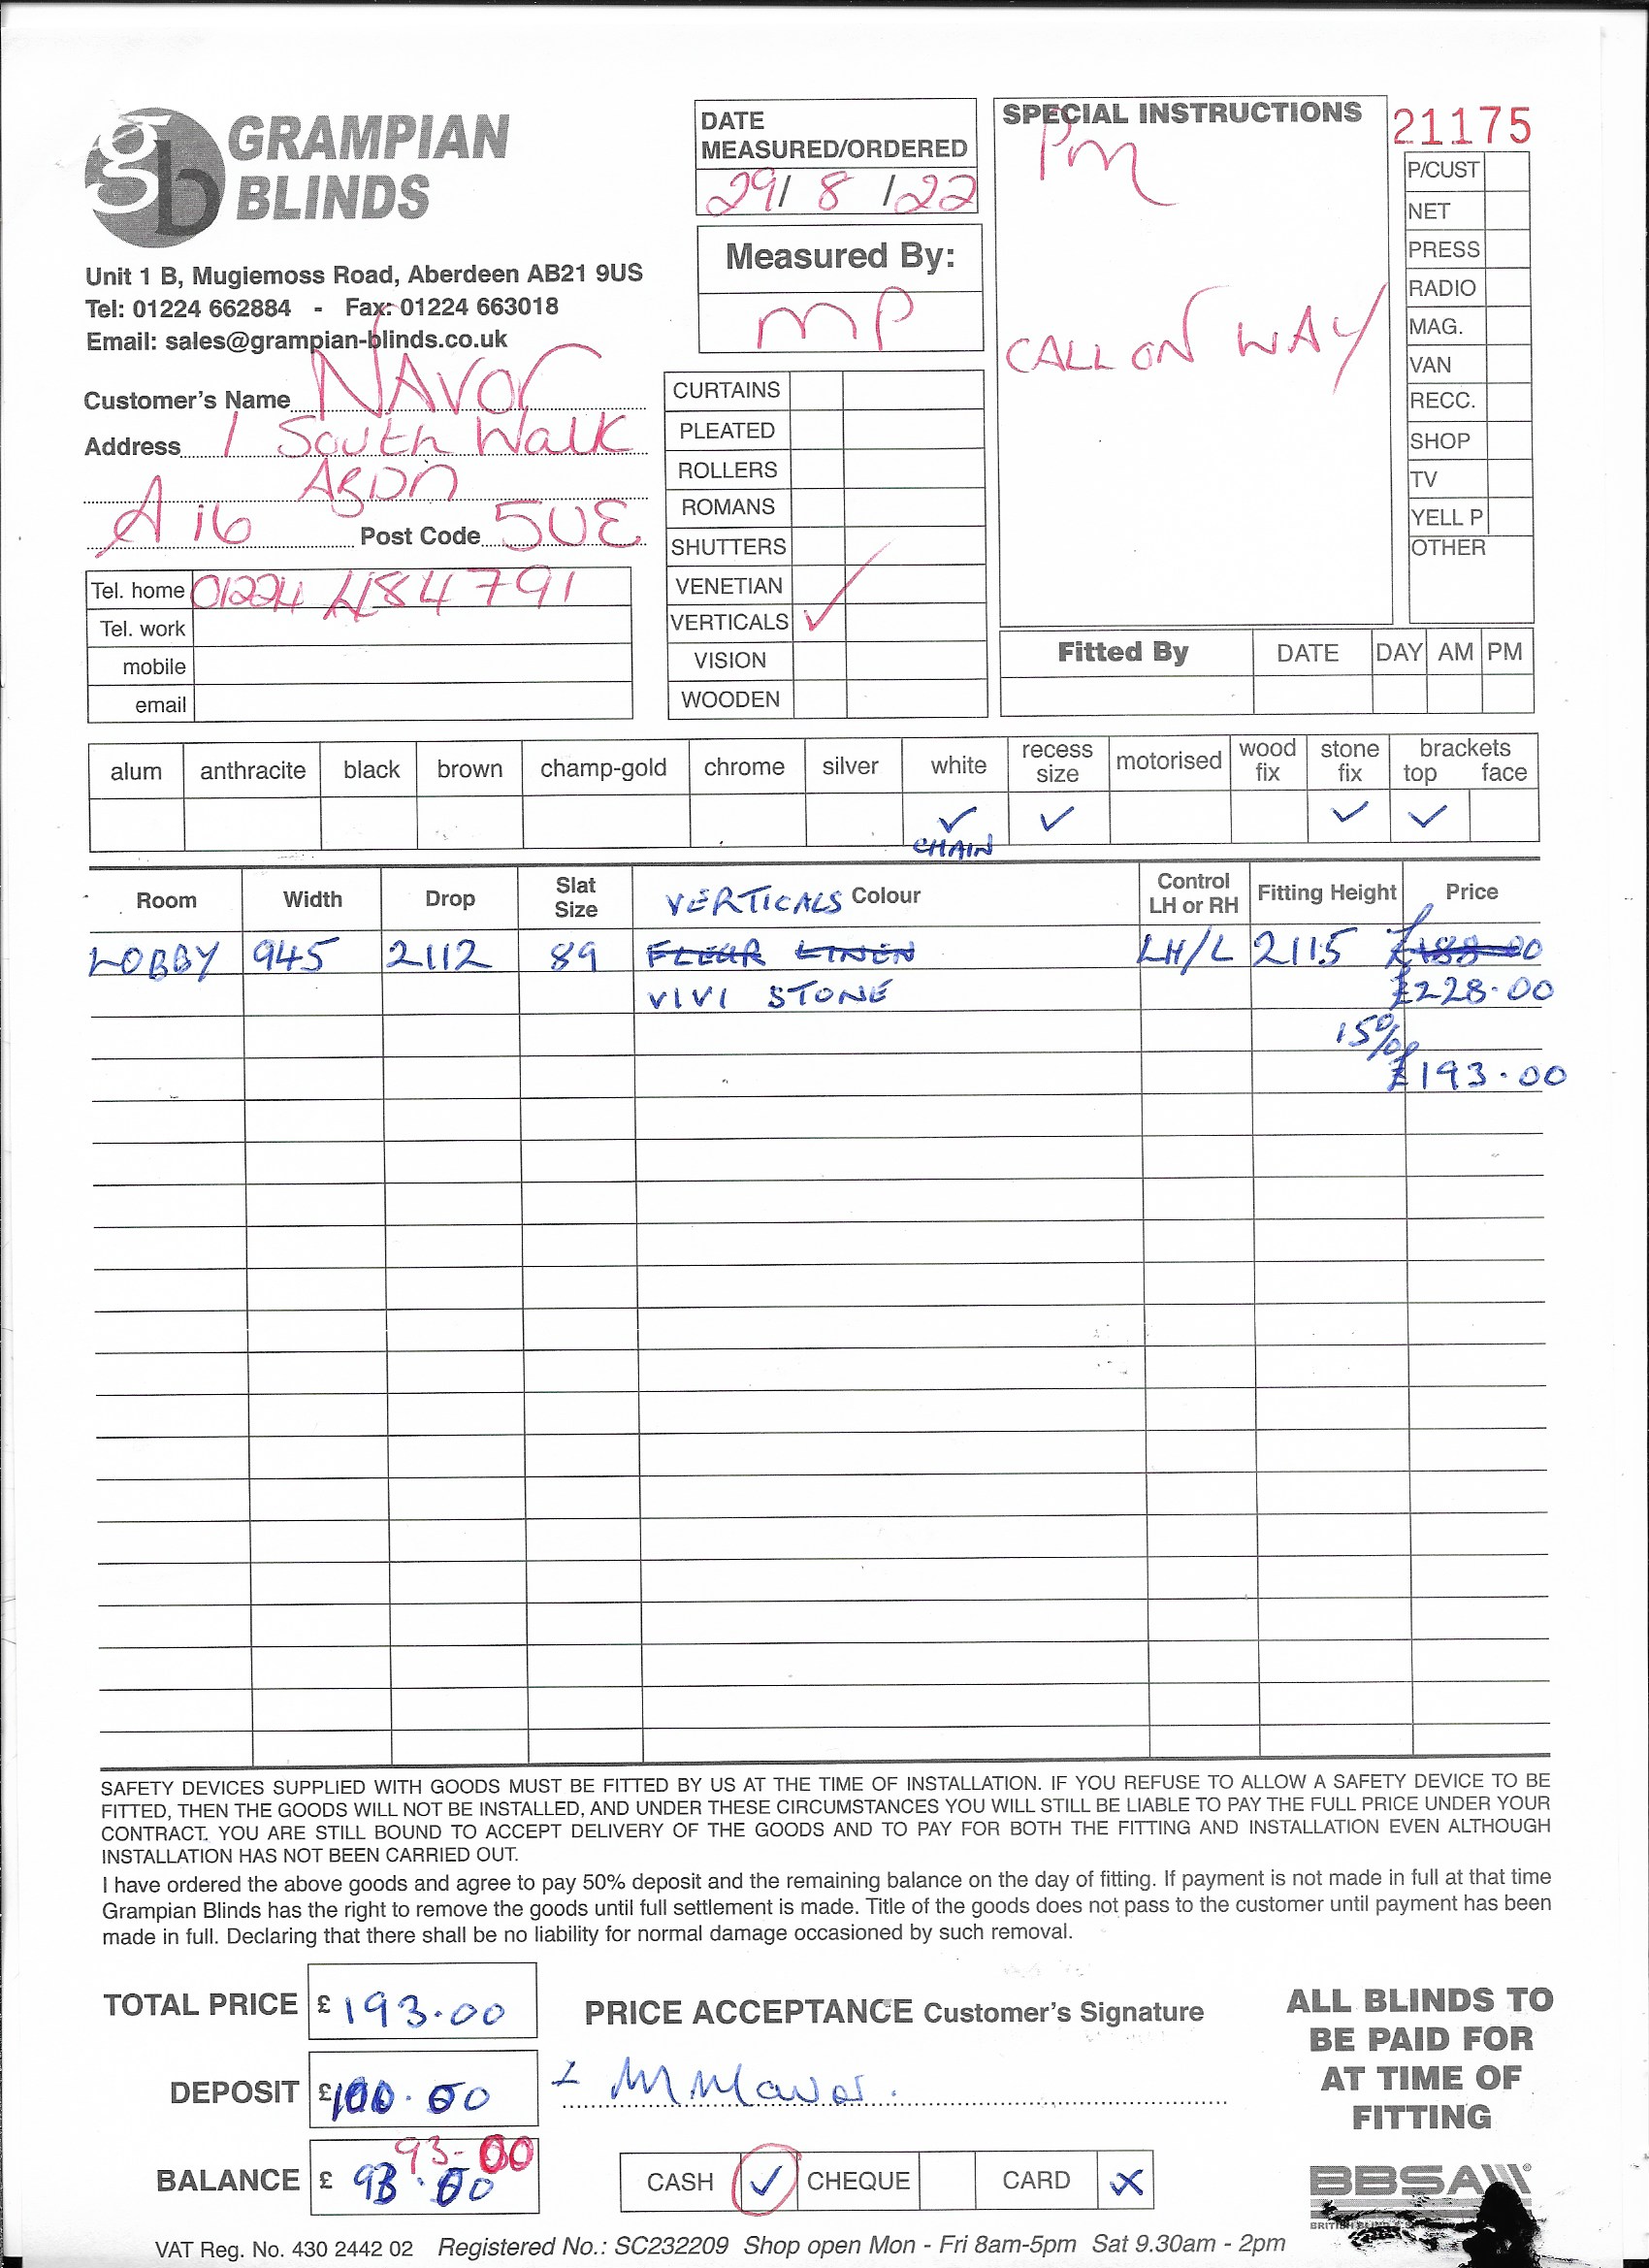 GRAMPIAN
BLINDS
Unit 1 B, Mugiemoss Road, Aberdeen AB21 9US
Tel: 01224 662884 - Fax: 01224 663018
Email: sales@grampian-blinds.co.uk
DATE
MEASURED/ORDERED
29/ 8 /22
Measured By:
MP
SPECIAL INSTRUCTIONS
PM
CALL ON WAY
21175
P/CUST
NET
PRESS
RADIO
MAG.
VAN
RECC.
SHOP
TV
YELL P
OTHER
Customer's Name NAVOr
Address 1 South Walk
ABDN
A 16 Post Code 5UE
Tel. home 01224 484791
Tel. work
mobile
email
CURTAINS
PLEATED
ROLLERS
ROMANS
SHUTTERS
VENETIAN
VERTICALS ✓
VISION
WOODEN
Fitted By DATE DAY AM PM
alum anthracite black brown champ-gold chrome silver white recess size motorised wood fix stone fix brackets top face
✓ ✓ ✓ ✓
CHAIN
Room Width Drop Slat Size VERTICALS Colour Control LH or RH Fitting Height Price
LOBBY 945 2112 89 FLEUR LINEN LH/L 2115
VIVI STONE £228.00
15%
£193.00
SAFETY DEVICES SUPPLIED WITH GOODS MUST BE FITTED BY US AT THE TIME OF INSTALLATION. IF YOU REFUSE TO ALLOW A SAFETY DEVICE TO BE
FITTED, THEN THE GOODS WILL NOT BE INSTALLED, AND UNDER THESE CIRCUMSTANCES YOU WILL STILL BE LIABLE TO PAY THE FULL PRICE UNDER YOUR
CONTRACT. YOU ARE STILL BOUND TO ACCEPT DELIVERY OF THE GOODS AND TO PAY FOR BOTH THE FITTING AND INSTALLATION EVEN ALTHOUGH
INSTALLATION HAS NOT BEEN CARRIED OUT.
I have ordered the above goods and agree to pay 50% deposit and the remaining balance on the day of fitting. If payment is not made in full at that time
Grampian Blinds has the right to remove the goods until full settlement is made. Title of the goods does not pass to the customer until payment has been
made in full. Declaring that there shall be no liability for normal damage occasioned by such removal.
TOTAL PRICE £ 193.00
PRICE ACCEPTANCE Customer's Signature
DEPOSIT £100.00
BALANCE £ 93.00
93-00
CASH ✓ CHEQUE CARD X
ALL BLINDS TO
BE PAID FOR
AT TIME OF
FITTING
BBSA
VAT Reg. No. 430 2442 02 Registered No.: SC232209 Shop open Mon - Fri 8am-5pm Sat 9.30am - 2pm